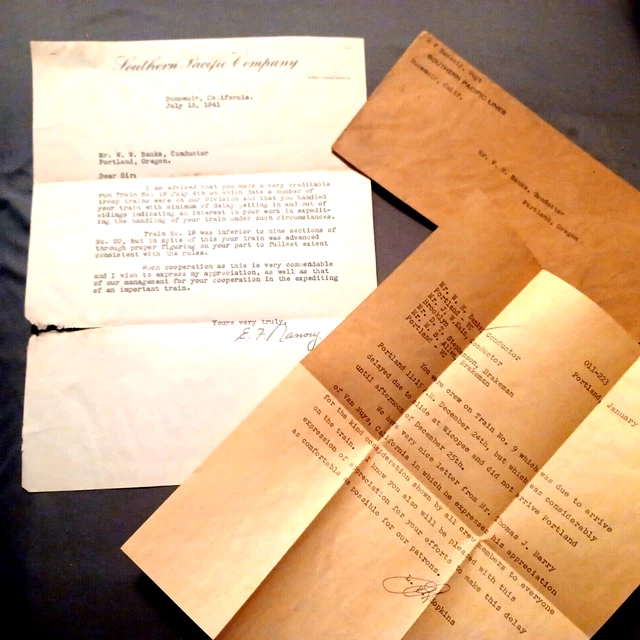 Southern Pacific Company
Dunsmuir, California.
July 15, 1941
Mr. W. W. Banks, Conductor
Portland, Oregon.
Dear Sir:
I am advised that you made a very creditable
run Train No. 19 July 4th on which date a number of
troop trains were on our division and that you handled
your train with minimum of delay getting in and out of
sidings indicating an interest in your work in expedit-
ing the handling of your train under such circumstances.
Train No. 19 was inferior to nine sections of
No. 20, but in spite of this your train was advanced
through proper figuring on your part to fullest extent
consistent with the rules.
Such cooperation as this is very commendable
and I wish to express my appreciation, as well as that
of our management for your cooperation in the expediting
of an important train.
Yours very truly,
SOUTHERN PACIFIC LINES
Dunsmuir, Calif.
Mr. W. W. Banks, Conductor
Portland, Oregon
011-223
Portland
January
Mr. W. W.
Portland
Conductor
Conductor
Brakeman
Brakeman
You were crew on Train No. 9 which was due to arrive
Portland 11:1 December 24th, but which was considerably
delayed due to slide at Wicopee and did not arrive Portland
until afternoon of December 25th.
very nice letter from Mr. Thomas J. Barry
of Van Nuys, California in which he expresses his appreciation
for the kind consideration shown by all crew members to everyone
on the train. I know you also will be pleased with this
expression of appreciation for your efforts to make this delay
as comfortable as possible for our patrons.